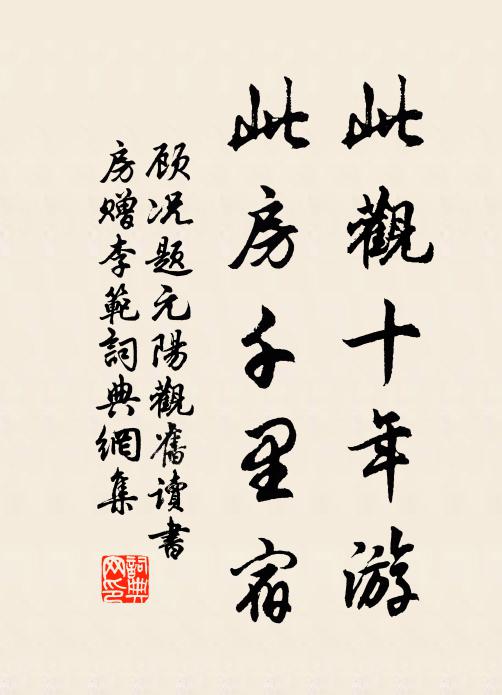 此觀十年游
此房千里宿
顾况题元陽觀舊讀書
房赠李範詞典網集
詞典
网印